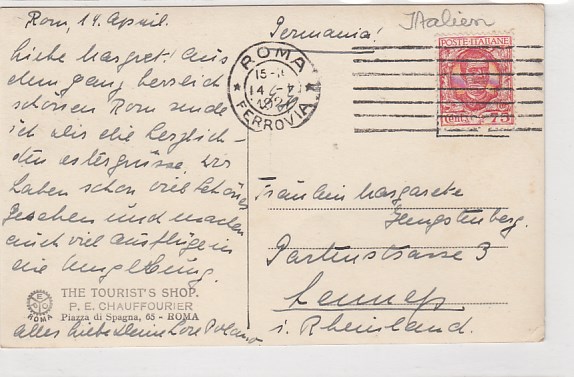 Rom, 14. April.
Liebe Margret! Aus
dem ganz herrlich
schönen Rom sende
ich dir die herzlich-
sten Ostergrüsse. Wir
haben schon viel Schönes
gesehen und machen
auch viel Ausflüge in
die Umgebung.
THE TOURIST'S SHOP.
P. E. CHAUFFOURIER
Piazza di Spagna, 65 - ROMA
ROMA
alles Liebe Deine Lore
Germania!
Italien
ROMA
15-
14
FERROVIA
POSTE·ITALIANE
Cent. 75
Fräulein Margarete
Hengstenberg.
Gartenstrasse 3
Lennep
i. Rheinland.